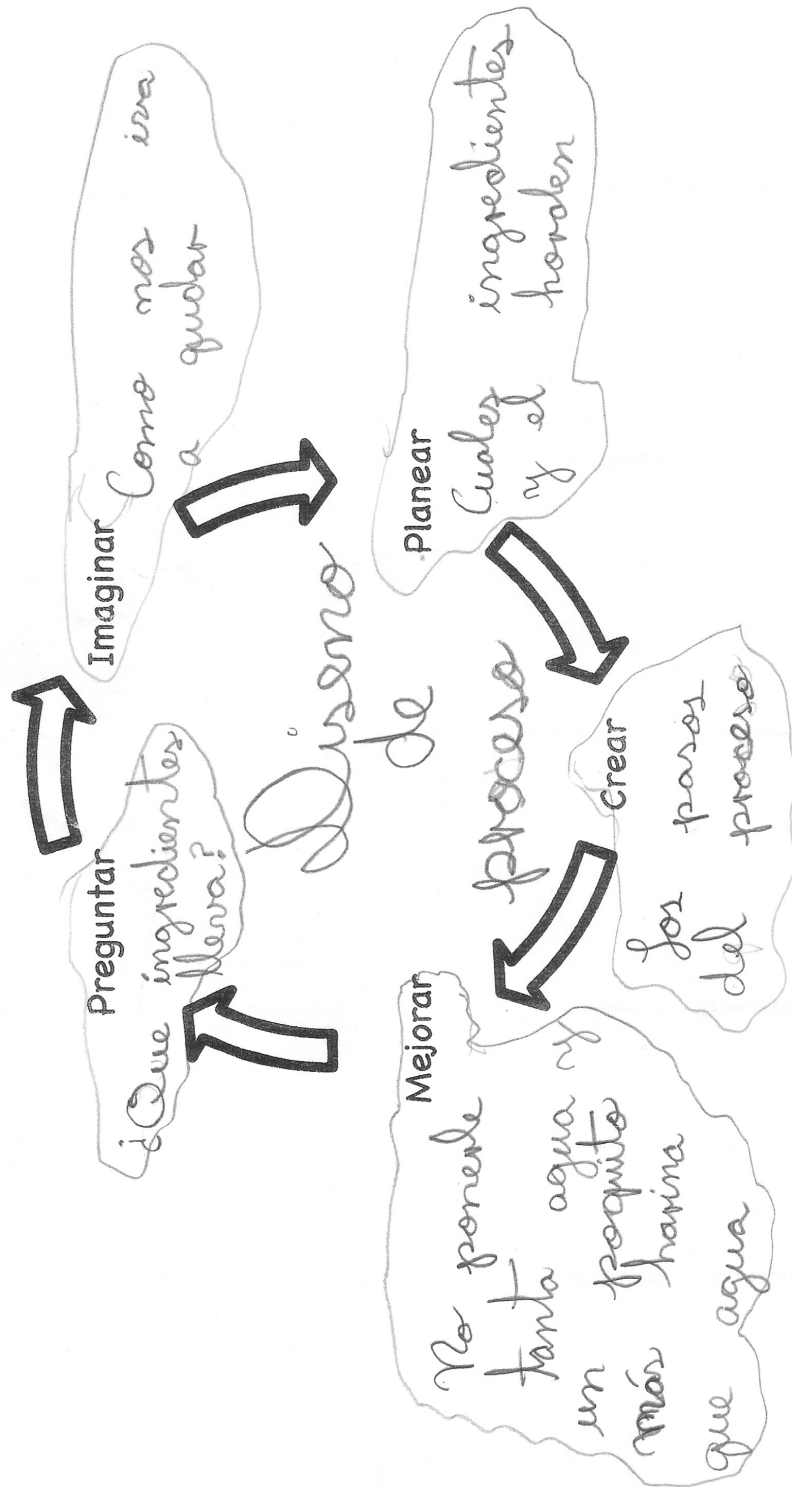 Preguntar
¿Que ingredientes
lleva?
Imaginar
Como nos iva
a qudar
Planear
Cuales ingredientes
y el horden
Crear
Los pasos
del proceso
Mejorar
No ponerle
tanta agua y
un poquito
más harina
que agua
Diseno
de
proceso